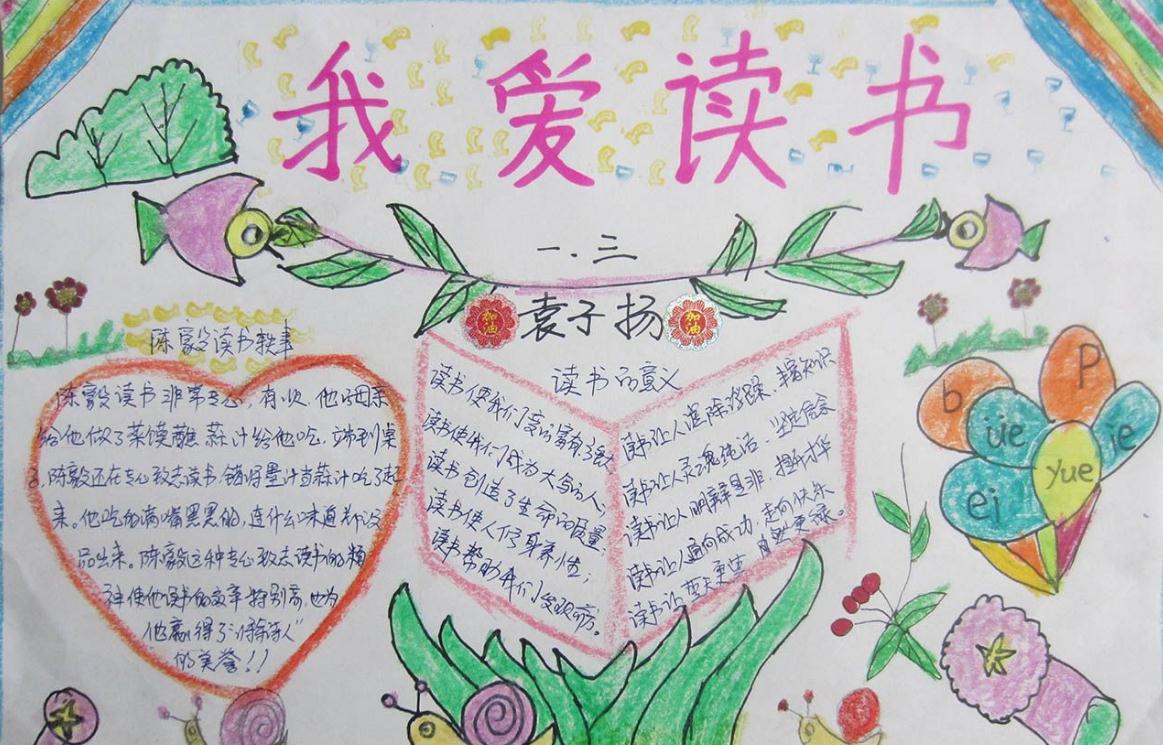 我爱读书
一.三
加油
袁子扬
加油
陈毅读书轶事
陈毅读书非常专心,有一次,他的母亲
给他做了菜馍蘸蒜汁给他吃,端到桌
陈毅还在专心致志读书,错将墨汁当蒜汁吃了起
来。他吃的满嘴黑黑的,连什么味道都没
品出来。陈毅这种专心致志读书的精
神使他读书的效率特别高,也为
他赢得了
的美誉!!
读书的意义
读书使我们变的富有强大
读书使我们成为大写的人
读书创造了生命的质量;
读书使人修身养性;
读书帮助我们发现
读书让人消除浮躁、丰富知识
读书让人灵魂纯洁、坚定信念
读书让人明辨是非、提升才华
读书让人通向成功、走向快乐
读书让蓝天更蓝
b
p
üe
ie
yue
ei